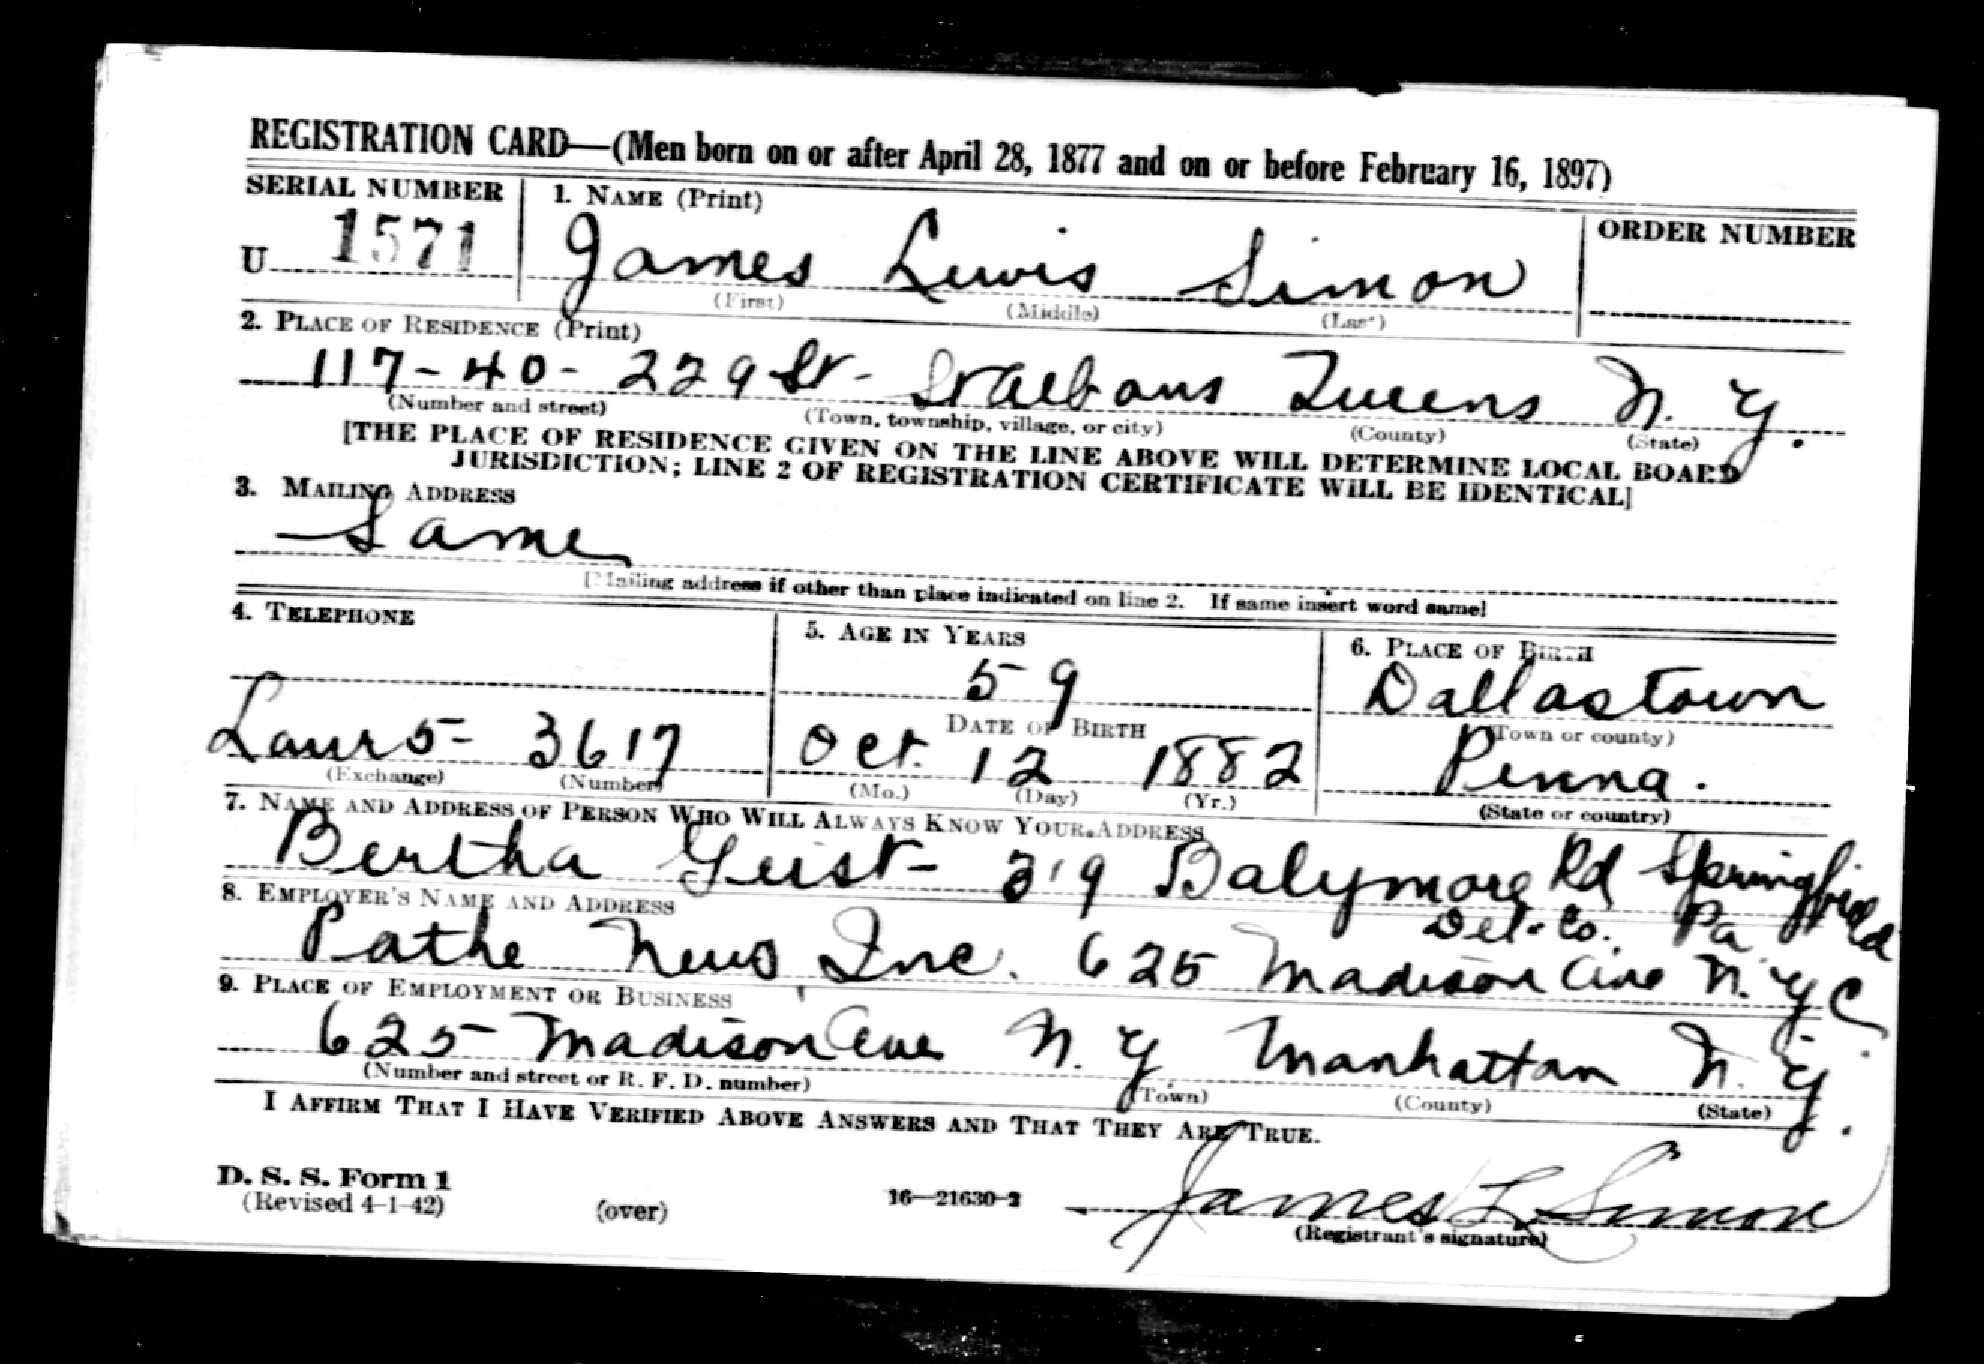 REGISTRATION CARD—(Men born on or after April 28, 1877 and on or before February 16, 1897)
SERIAL NUMBER
1. NAME (Print)
ORDER NUMBER
U 1571
James Lewis Simon
(First) (Middle) (Last)
2. PLACE OF RESIDENCE (Print)
117-40-229 St- St Albans Queens N. Y.
(Number and street) (Town, township, village, or city) (County) (State)
[THE PLACE OF RESIDENCE GIVEN ON THE LINE ABOVE WILL DETERMINE LOCAL BOARD
JURISDICTION; LINE 2 OF REGISTRATION CERTIFICATE WILL BE IDENTICAL]
3. MAILING ADDRESS
Same
[Mailing address if other than place indicated on line 2. If same insert word same]
4. TELEPHONE
5. AGE IN YEARS
6. PLACE OF BIRTH
59
Dallastown
DATE OF BIRTH
(Town or county)
Laur 5- 3617
Oct. 12 1882
Penna.
(Exchange) (Number)
(Mo.) (Day) (Yr.)
(State or country)
7. NAME AND ADDRESS OF PERSON WHO WILL ALWAYS KNOW YOUR ADDRESS
Bertha Geist- 319 Balymore Rd Springfield
Del. Co. Pa
8. EMPLOYER'S NAME AND ADDRESS
Pathe News, Inc. 625 Madison Ave N. Y C
9. PLACE OF EMPLOYMENT OR BUSINESS
625 Madison Ave N. Y. Manhattan N. Y.
(Number and street or R. F. D. number) (Town) (County) (State)
I AFFIRM THAT I HAVE VERIFIED ABOVE ANSWERS AND THAT THEY ARE TRUE.
D. S. S. Form 1
(Revised 4-1-42)
(over)
16—21630-2
James L. Simon
(Registrant's signature)